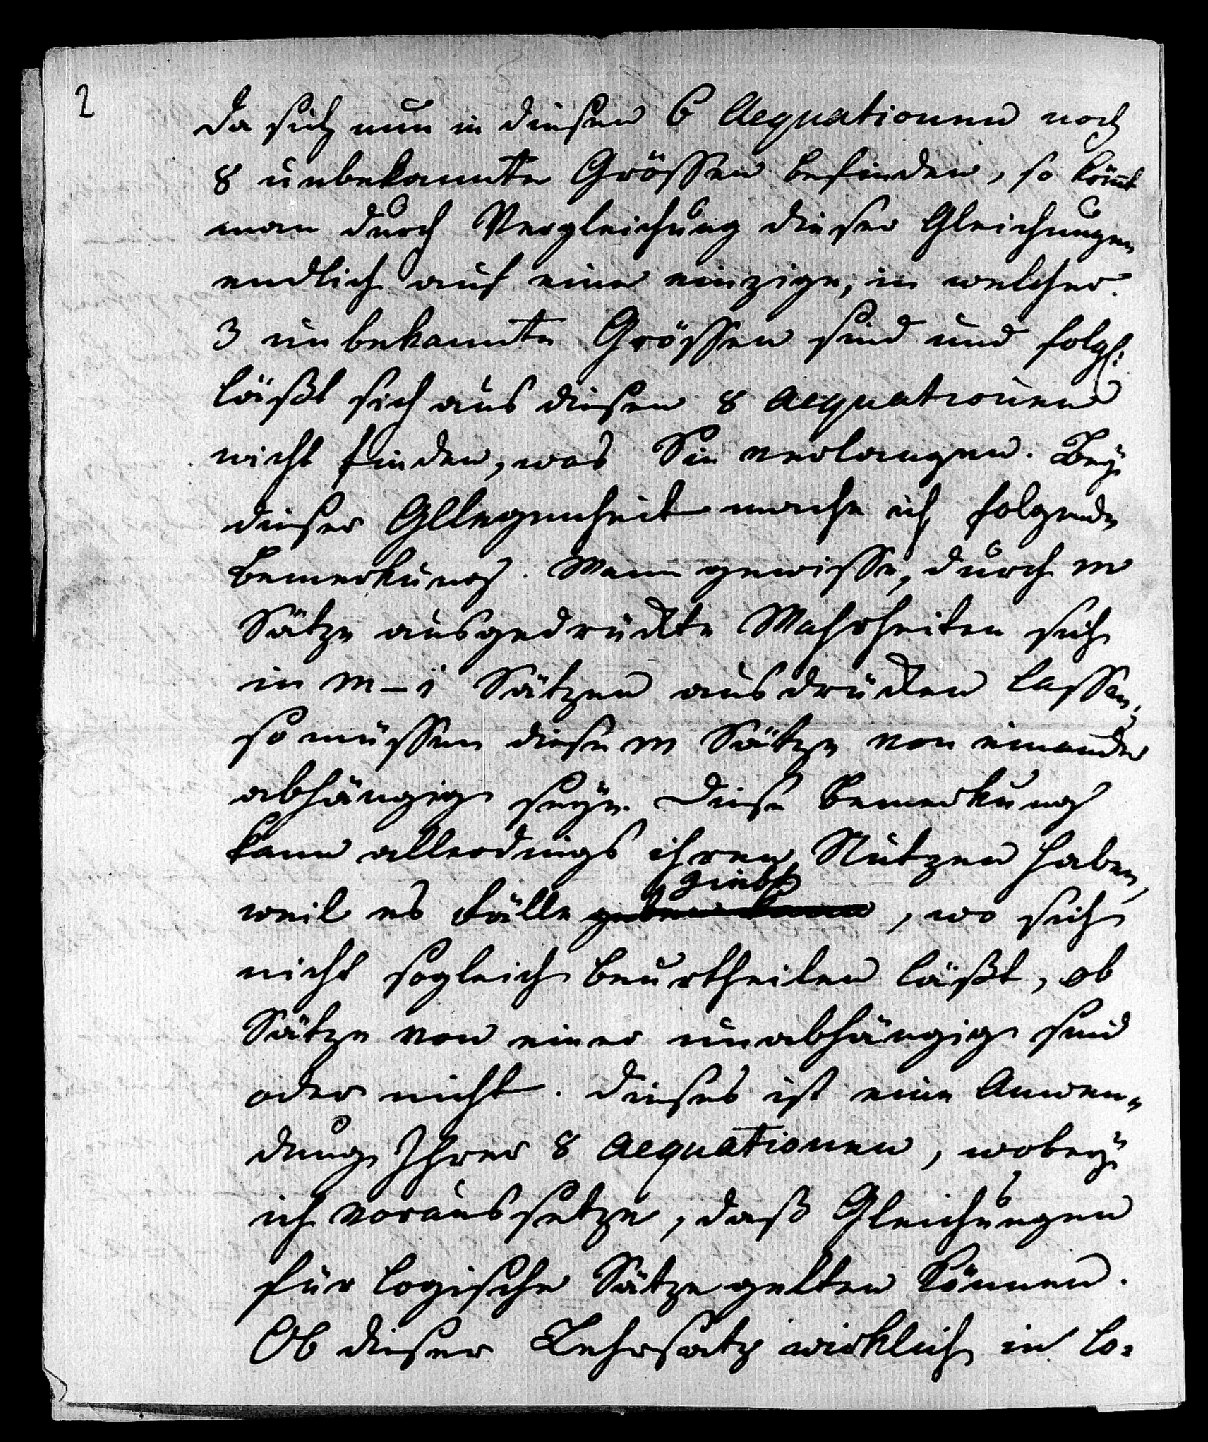 2
da sich nun in diesen 6 Aequationen noch
8 unbekannte Grössen befinden, so kömt
man durch Vergleichung dieser Gleichungen
endlich auf eine einzige, in welcher
3 unbekannte Grössen sind und folgl:
läßt sich aus diesen 8 Aequationen
nicht finden, was Sie verlangen. Bey
dieser Gllegenheit mache ich folgende
Bemerkung. Wenn gewisse, durch m
Sätze ausgedrückte Wahrheiten sich
in m–1 Sätzen ausdrücken lassen,
so müssen diese m Sätze von einander
abhängig seyn. Diese Bemerkung
kann allerdings ihren Nutzen haben,
weil es Fälle giebt, wo sich
nicht sogleich beurtheilen läßt, ob
Sätze von einer unabhängig sind
oder nicht. Dieses ist eine Anwen-
dung Ihrer 8 Aequationen, wobey
ich voraussetze, daß Gleichungen
für logische Sätze gelten können.
Ob dieser Lehrsatz wirklich in lo-